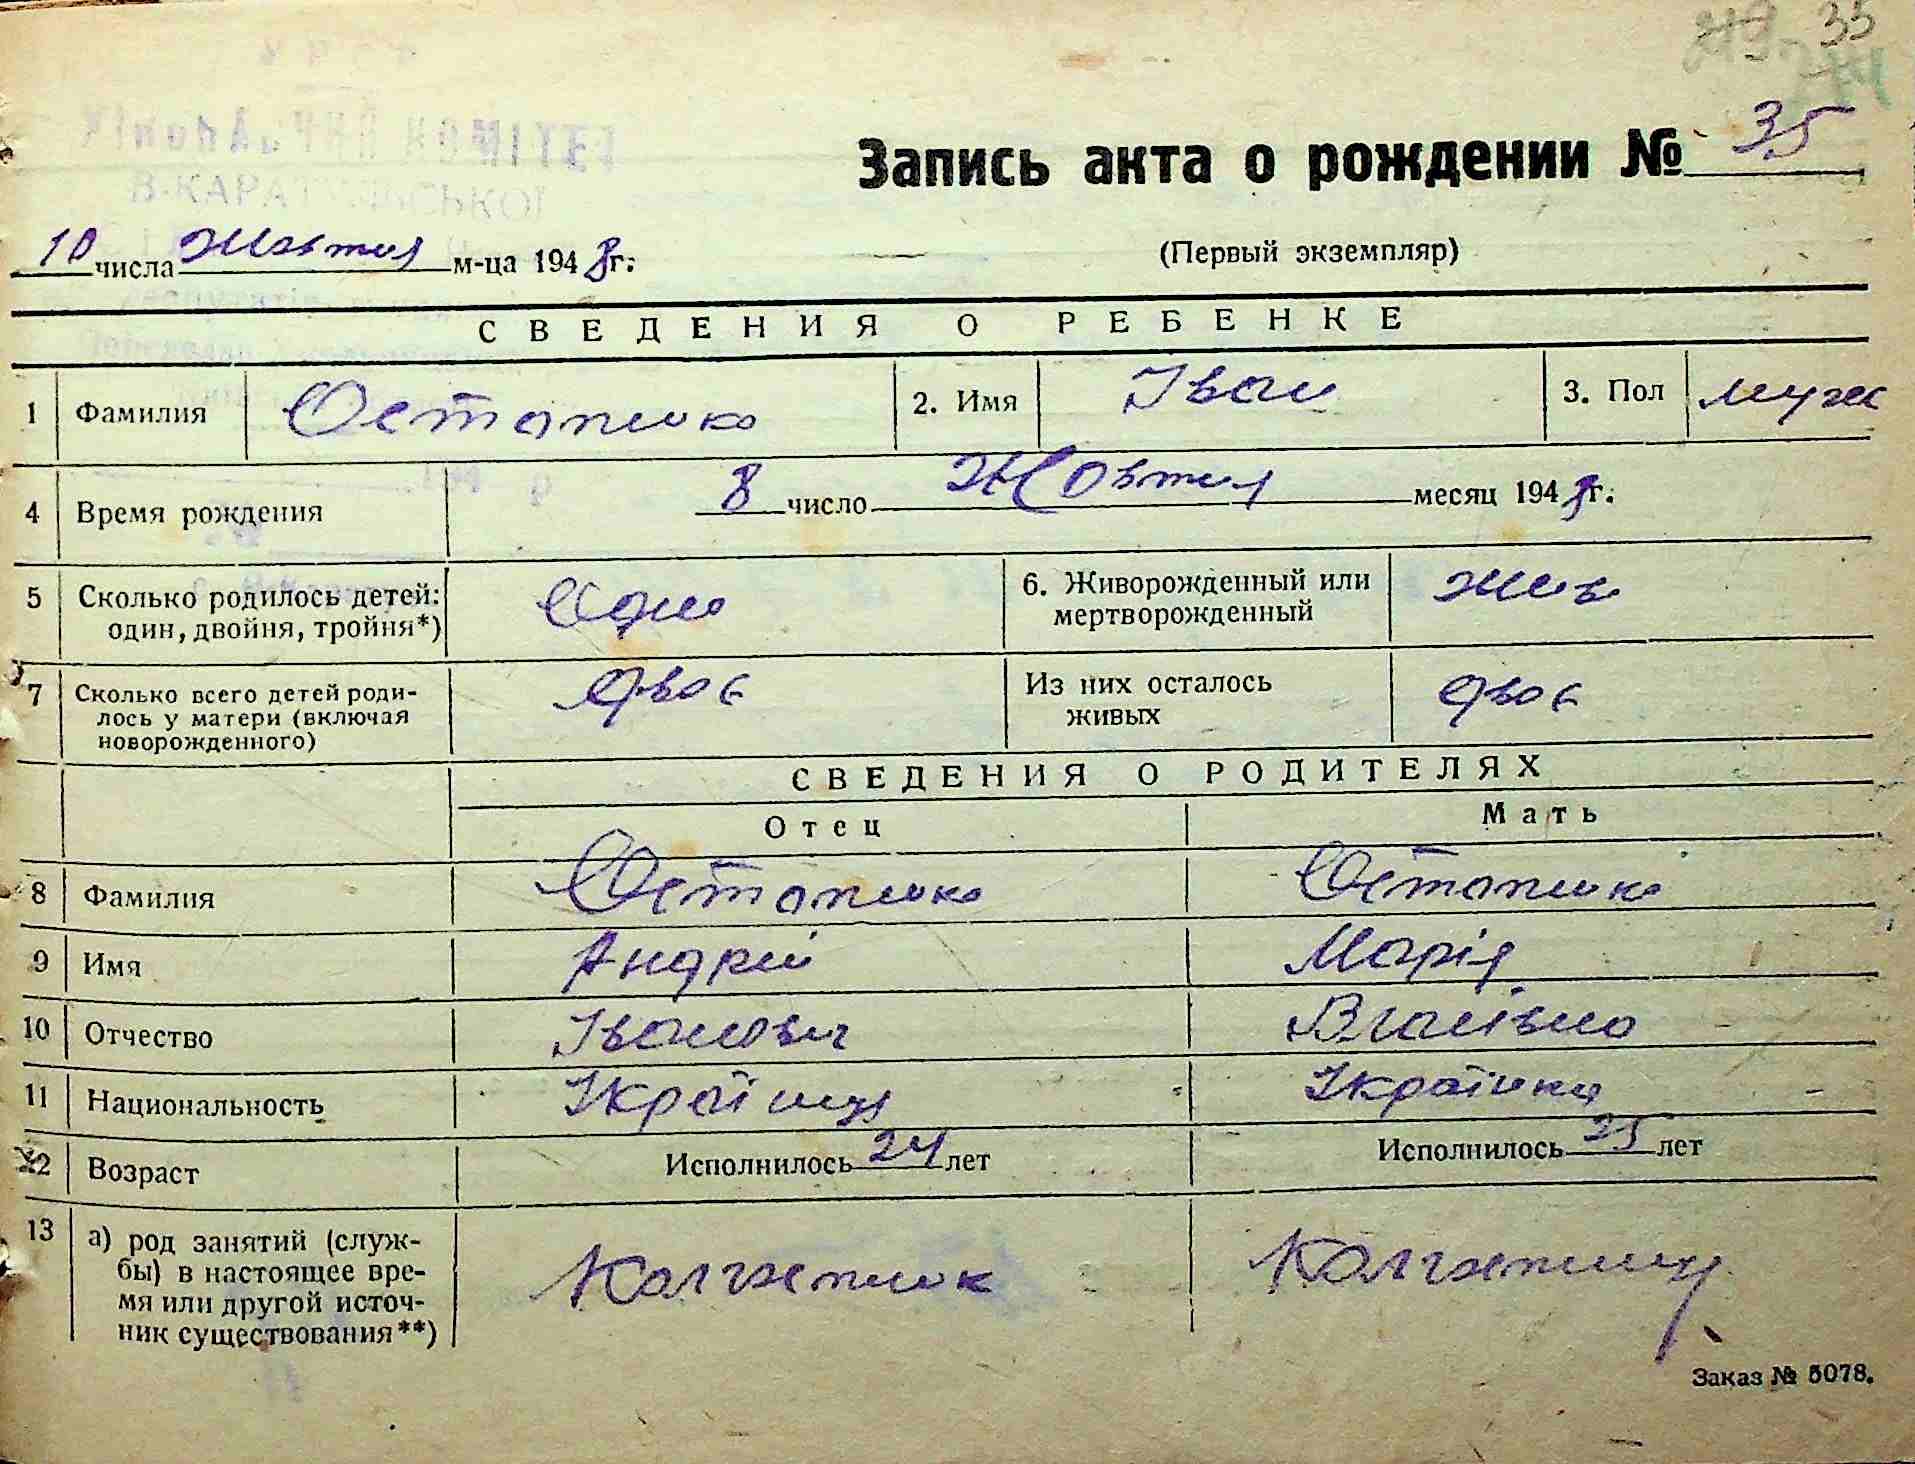 35
Запись акта о рождении № 35
10 числа Жовтня м-ца 1948 г.
(Первый экземпляр)
СВЕДЕНИЯ О РЕБЕНКЕ
1 Фамилия Остапенко 2. Имя Іван 3. Пол муж
4 Время рождения 8 число Жовтня месяц 1948 г.
5 Сколько родилось детей: один, двойня, тройня*) Один 6. Живорожденный или мертворожденный жив
7 Сколько всего детей родилось у матери (включая новорожденного) двоє Из них осталось живых двоє
СВЕДЕНИЯ О РОДИТЕЛЯХ
Отец Мать
8 Фамилия Остапенко Остапенко
9 Имя Андрій Марія
10 Отчество Іванович Власівна
11 Национальность Українець Українка
12 Возраст Исполнилось 24 лет Исполнилось 25 лет
13 а) род занятий (служ-
бы) в настоящее вре-
мя или другой источ-
ник существования**) Колгоспник Колгоспниця
Заказ № 5078.